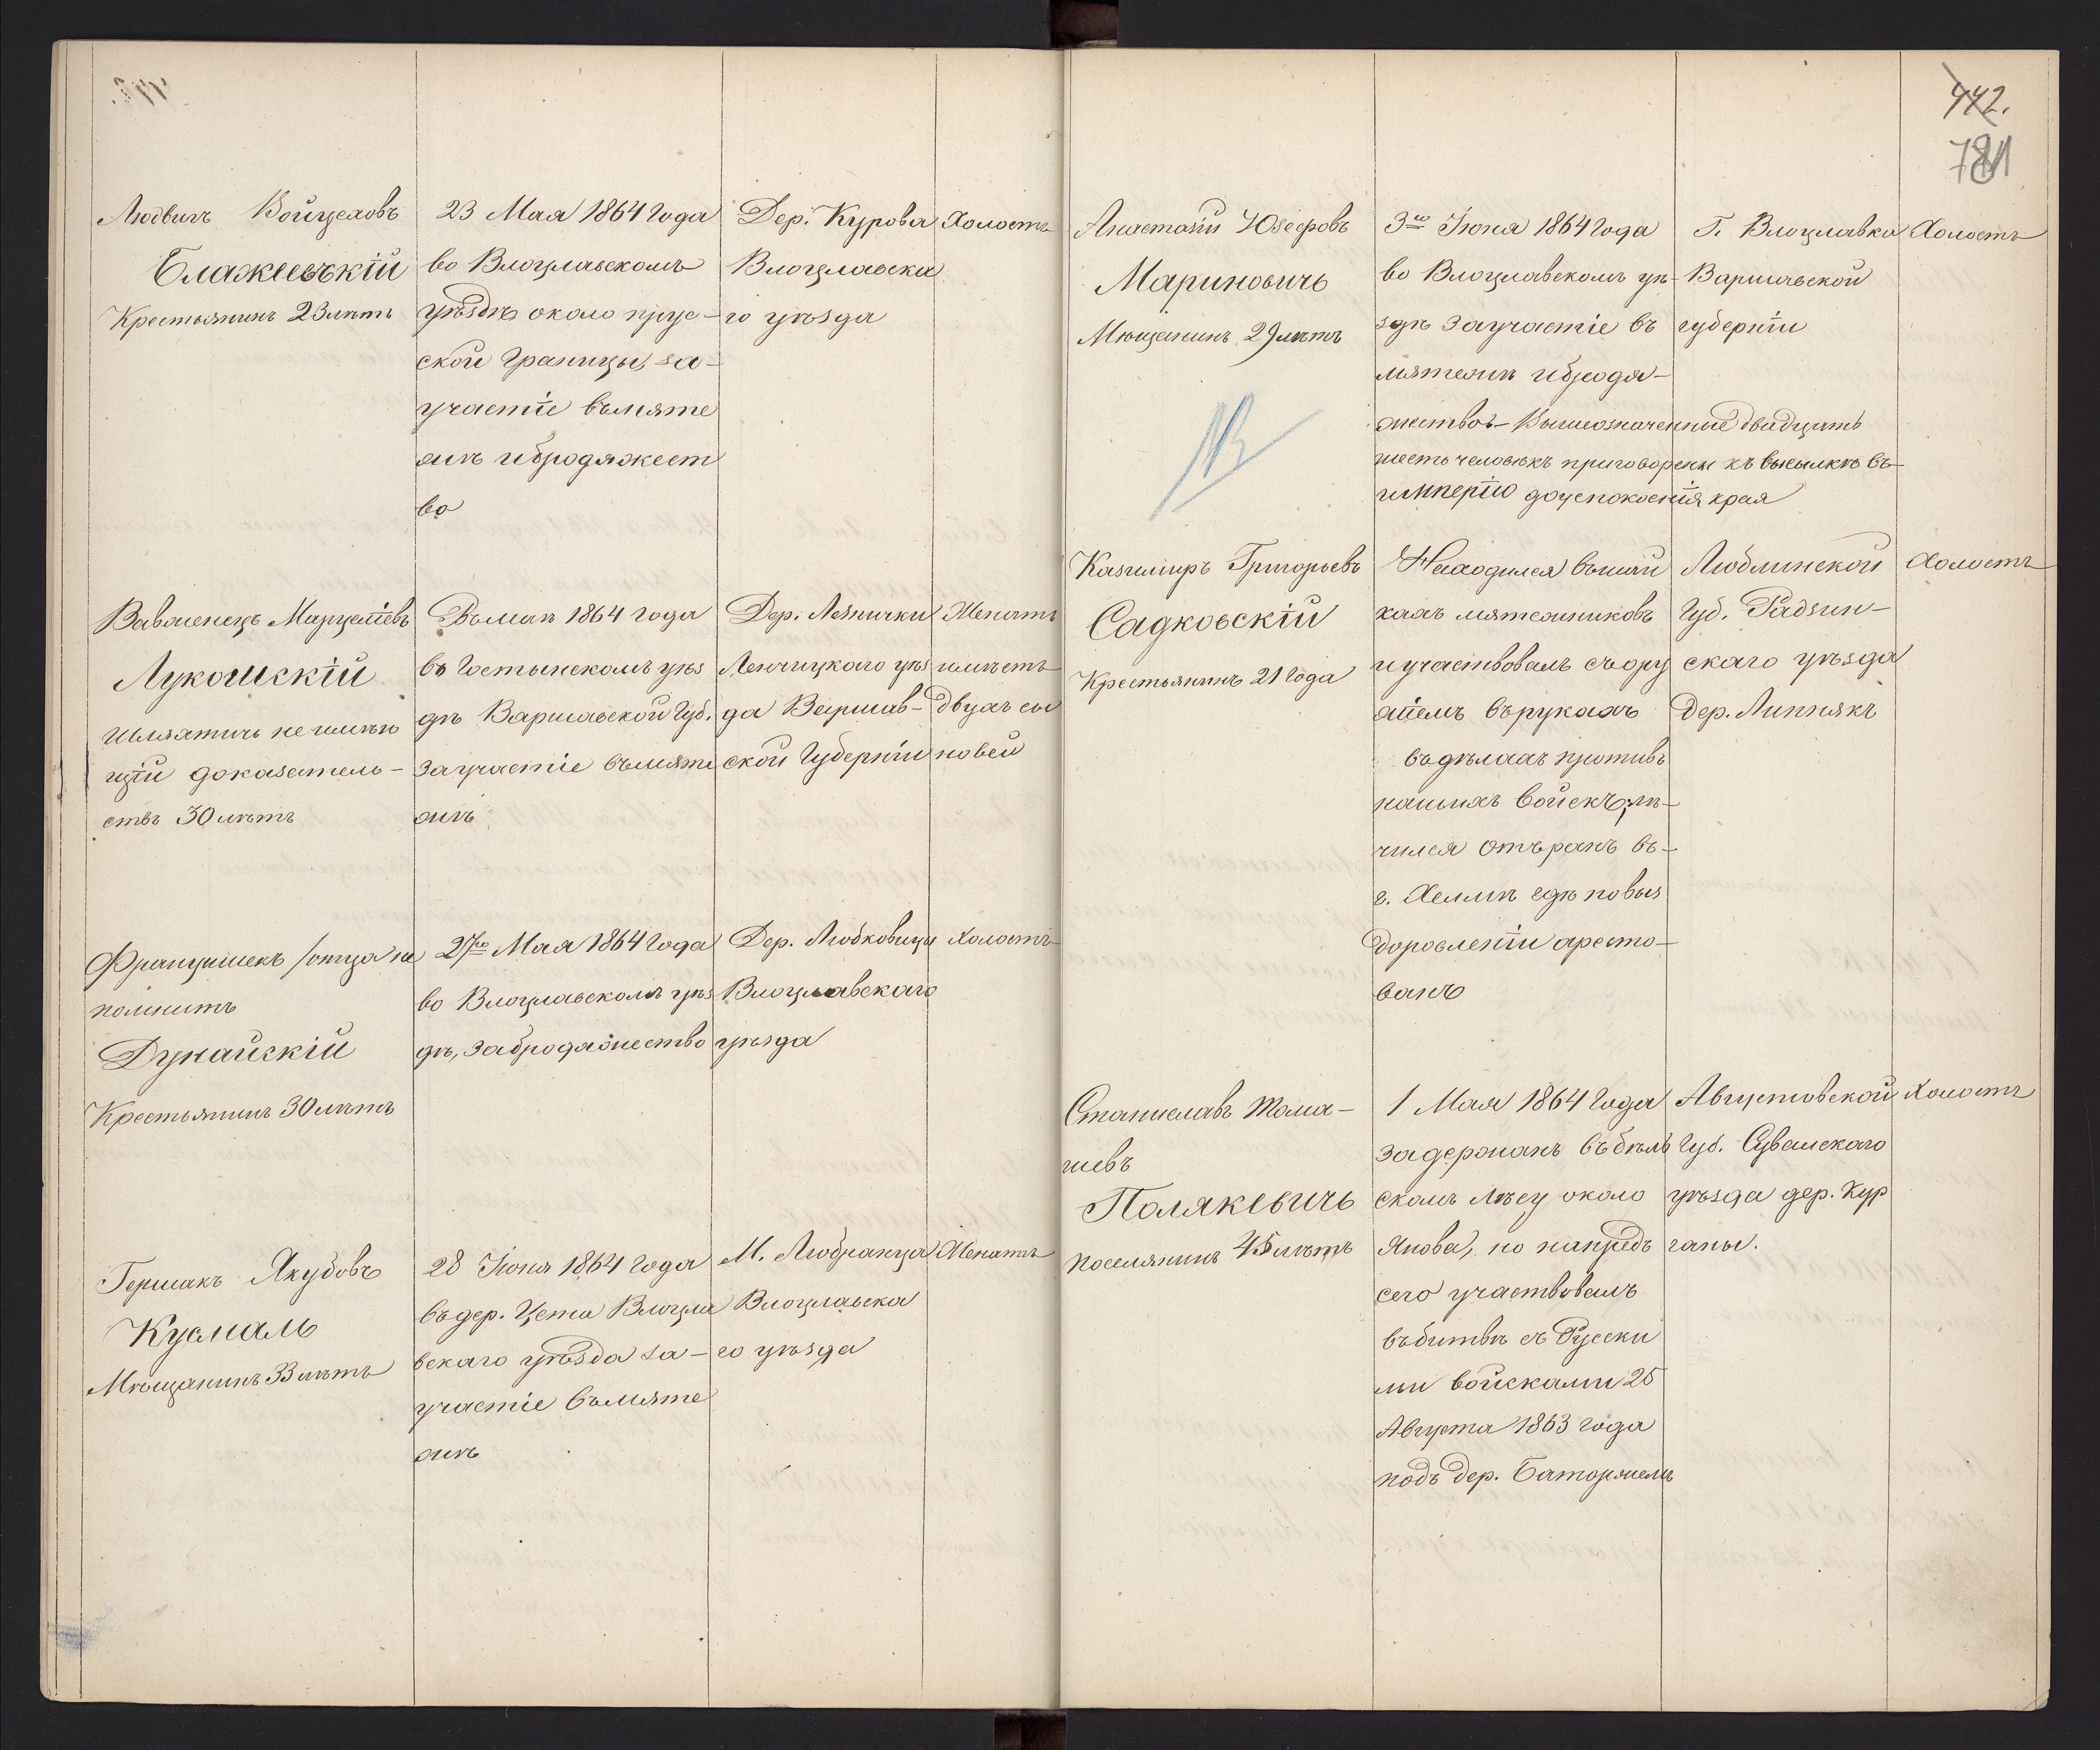 Людвигъ Войцеховъ
Блажеевскій
Крестьянинъ 23 лѣтъ
23 Мая 1864 года
во Влоцлавскомъ
уѣздѣ около прус-
ской границы, за-
участіе въ мяте
жѣ и бродяжест
во
Дер. Курова
Влоцлавска
го уѣзда
Холостъ
Вавженецъ Марцеліевъ
Лукошскій
шляхтичь не имѣю
щій доказатель-
ствъ 30 лѣтъ
Въ маѣ 1864 года
въ Гостынскомъ уѣз
дѣ Варшавской Губ.
за участіе въ мяте
жѣ
Дер. Лезнички
Ленчицкаго уѣз
да Варшав-
ской Губерніи
Женатъ
имѣетъ
двухъ сы
новей
Францишекъ /отца не
помнитъ
Дунайскій
Крестьянинъ 30 лѣтъ
27го Мая 1864 года
во Влоцлавскомъ уѣз
дѣ, за бродяжество
Дер. Любковицы
Влоцлавскаго
уѣзда
Холостъ
Гершакъ Якубовъ
Кусмаль
Мѣщанинъ 33 лѣтъ
28 Іюня 1864 года
въ дер. Цета Влоцла
вскаго уѣзда за-
участіе въ мяте
жѣ
М. Любранца
Влоцлавска
го уѣзда
Женатъ
442.
781
Анастазій Юзефовъ
Мариновичь
Мѣщанинъ 29 лѣтъ
3го Іюня 1864 года
во Влоцлавскомъ уѣ-
здѣ за участіе въ
мятежѣ и брродя-
жество - Вышеозначенные двадцать
шесть человѣкъ приговорены къ высылкѣ въ-
имперію до успокоенія края
Г. Влоцлавка
Варшавской
губерніи
Холостъ
Казимиръ Григорьевъ
Садковскій
Крестьянинъ 21 года
Находился въ шай
кахъ мятежниковъ
и участвовалъ съ ору
жіемъ въ рукахъ
въ дѣлахъ противъ
нашихъ войскъ, лѣ-
чился отъ ранъ въ-
г. Хелмѣ гдѣ по выз
доровленіи аресто-
ванъ
Люблинской
Губ. Радзин-
скаго уѣзда
Дер. Липнякъ
Холостъ
Станиславъ Тома-
шевъ
Полякевичь
поселянинъ 45 лѣтъ
1 Мая 1864 года
задержанъ въ бѣль
скомъ лѣсу около
Янова, но напредъ
сего участвовалъ
въ битвѣ съ Русски
ми войсками 25
Августа 1863 года
подъ дер. Баторжемъ
Августовской
Губ. Сувалскаго
уѣзда дер. Кур
ганы.
Холостъ